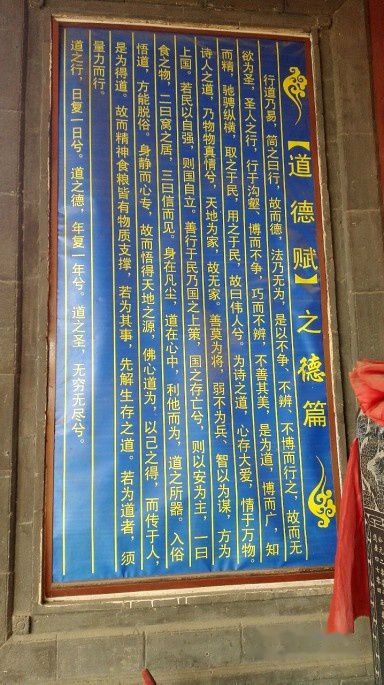 【道德赋】之德篇
行道乃易，简之曰行，故而德，法乃无为，是以不争、不辨、不博而行之，故而无
欲为圣，圣人之行，行于沟壑、博而不争，巧而不辨，不善其美，是为道，博而广，知
而精，驰骋纵横，取之于民，用之于民，故曰伟人兮。为诗之道，心存大爱，情于万物。
诗人之道，乃物物真情兮，天地为家，故无家。善莫为将，弱不为兵、智以为谋，方为
上国。若民以自强，则国自立。善行于民乃国之上策，国之存亡兮，则以安为主，一曰
食之物，二曰窝之居，三曰信而见。身在凡尘，道在心中，利他而为，道之所器。入俗
悟道，方能脱俗。身静而心专，故而悟得天地之源，佛心道为，以己之得，而传于人，
是为得道。故而精神食粮皆有物质支撑，若为其事，先解生存之道。若为道者，须
量力而行。
道之行，日复一日兮。道之德，年复一年兮。道之圣，无穷无尽兮。